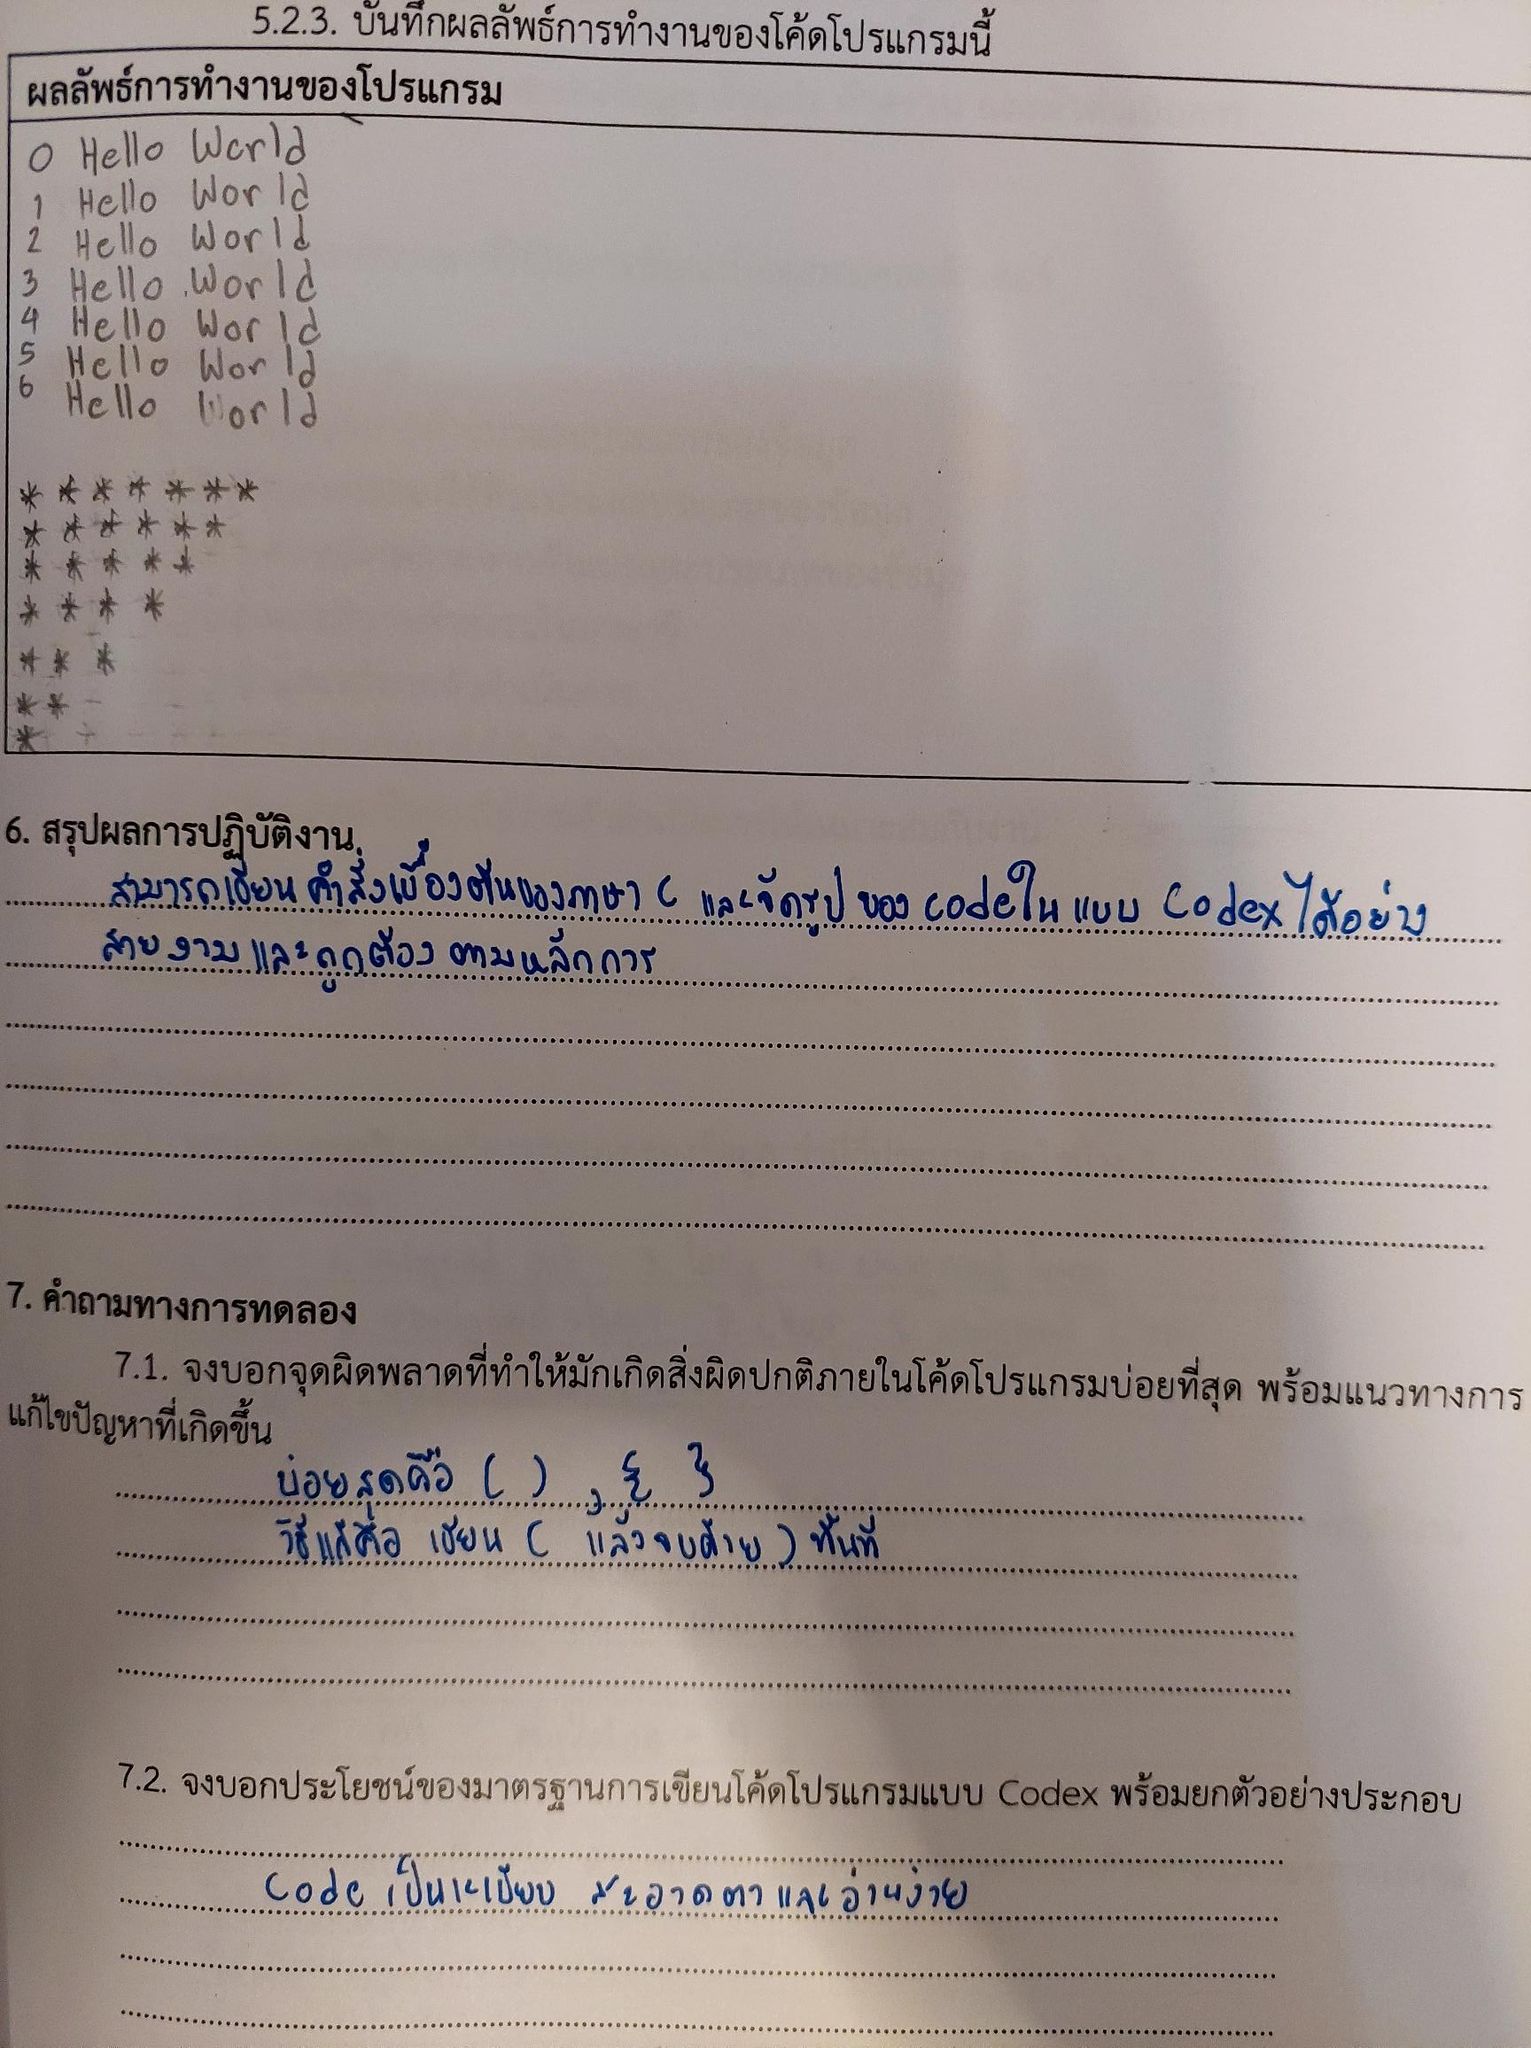 5.2.3. บันทึกผลลัพธ์การทำงานของโค้ดโปรแกรมนี้
ผลลัพธ์การทำงานของโปรแกรม
0 Hello World
1 Hello World
2 Hello World
3 Hello World
4 Hello World
5 Hello World
6 Hello World
* * * * * * *
* * * * * *
* * * * *
* * * *
* * *
* *
*
6. สรุปผลการปฏิบัติงาน
สามารถเขียนคำสั่งเบื้องต้นของภาษา C และจัดรูปของ code ในแบบ Codex ได้อย่าง
สวยงามและถูกต้องตามหลักการ
7. คำถามทางการทดลอง
7.1. จงบอกจุดผิดพลาดที่ทำให้มักเกิดสิ่งผิดปกติภายในโค้ดโปรแกรมบ่อยที่สุด พร้อมแนวทางการ
แก้ไขปัญหาที่เกิดขึ้น
บ่อยสุดคือ ( ) , { }
วิธีแก้คือ เขียน ( แล้วจบด้วย ) ทันที
7.2. จงบอกประโยชน์ของมาตรฐานการเขียนโค้ดโปรแกรมแบบ Codex พร้อมยกตัวอย่างประกอบ
Code เป็นระเบียบ สะอาดตาและอ่านง่าย